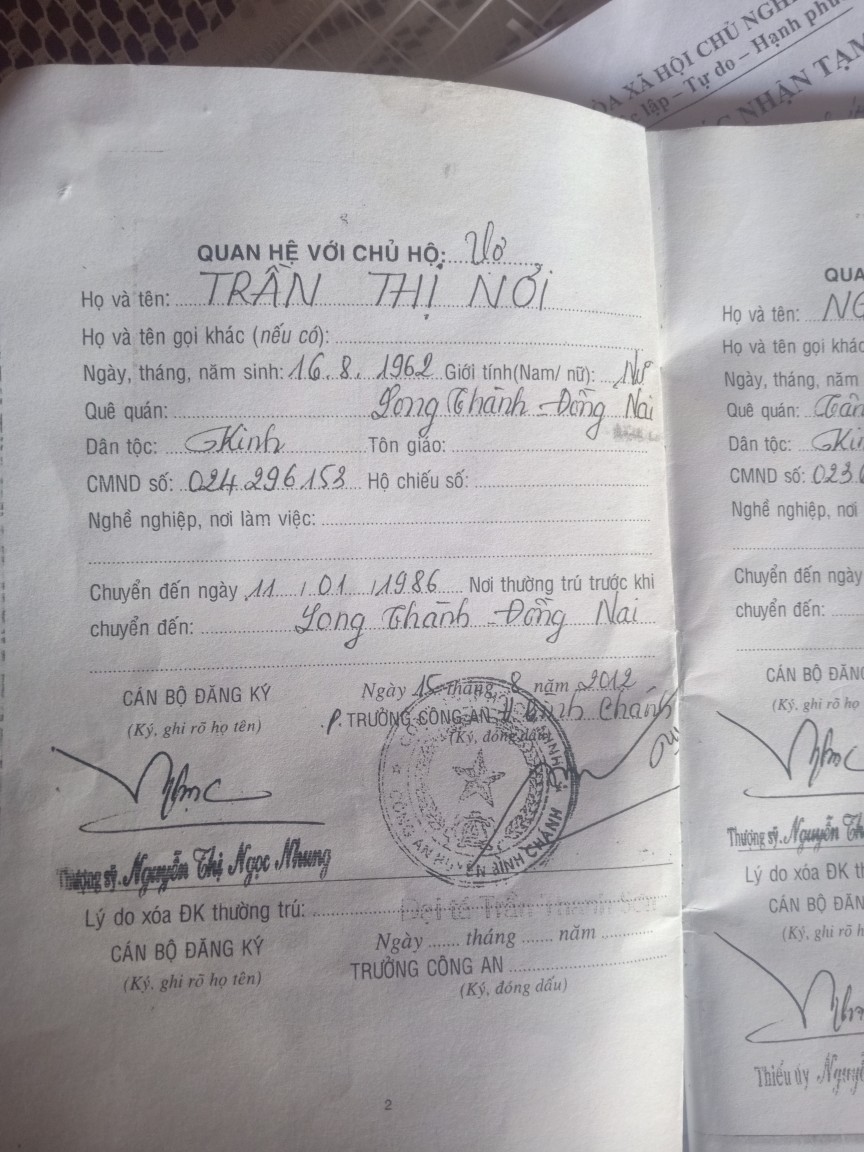 ÒA XÃ HỘI CHỦ NGH
lập – Tự do – Hạnh phú
NHẬN TẠM
QUAN HỆ VỚI CHỦ HỘ: Vợ
Họ và tên: TRẦN THỊ NỚI
Họ và tên gọi khác (nếu có):
Ngày, tháng, năm sinh: 16.8.1962 Giới tính(Nam/ nữ): Nữ
Quê quán: Long Thành - Đồng Nai
Dân tộc: Kinh Tôn giáo:
CMND số: 024 296 153 Hộ chiếu số:
Nghề nghiệp, nơi làm việc:
Chuyển đến ngày 11 / 01 / 1986 Nơi thường trú trước khi
chuyển đến: Long Thành - Đồng Nai
CÁN BỘ ĐĂNG KÝ
(Ký, ghi rõ họ tên)
Ngày 15 tháng 8 năm 2012
P. TRƯỞNG CÔNG AN H. Bình Chánh
(Ký, đóng dấu)
CÔNG AN HUYỆN BÌNH CHÁNH
Thượng sỹ. Nguyễn Thị Ngọc Nhung
Đại tá Trần Thanh Sơn
Lý do xóa ĐK thường trú:
CÁN BỘ ĐĂNG KÝ
(Ký, ghi rõ họ tên)
Ngày ....... tháng ...... năm
TRƯỞNG CÔNG AN
(Ký, đóng dấu)
2
QUA
Họ và tên: NG
Họ và tên gọi khác
Ngày, tháng, năm
Quê quán: Tân
Dân tộc: Kin
CMND số: 023
Nghề nghiệp, nơi
Chuyển đến ngày
chuyển đến:
CÁN BỘ ĐĂNG
(Ký, ghi rõ họ
Thượng sỹ. Nguyễn Th
Lý do xóa ĐK th
CÁN BỘ ĐĂN
(Ký, ghi rõ h
Thiếu úy Nguyễ